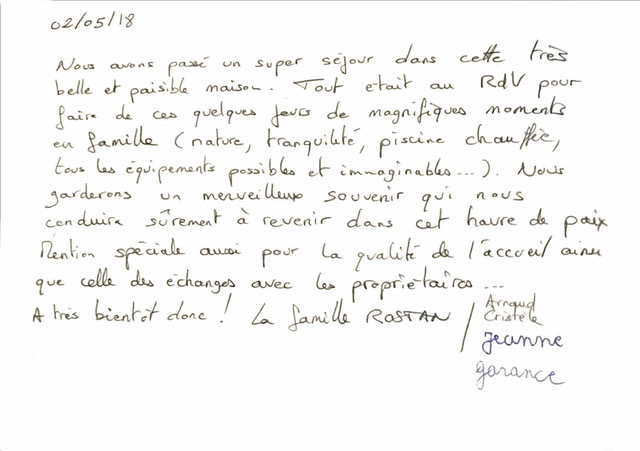 02/05/18
Nous avons passé un super séjour dans cette très
belle et paisible maison. Tout etait au RdV pour
faire de ces quelques jours de magnifiques moments
en famille (nature, tranquilité, piscine chauffée,
tous les équipements possibles et immaginables...). Nous
garderons un merveilleux souvenir qui nous
conduira sûrement à revenir dans cet havre de paix
Mention spéciale aussi pour la qualité de l'accueil ainsi
que celle des échanges avec les propriètaires...
A très bientôt donc ! La famille ROSTAN / Arnaud
Cristèle
Jeanne
garance